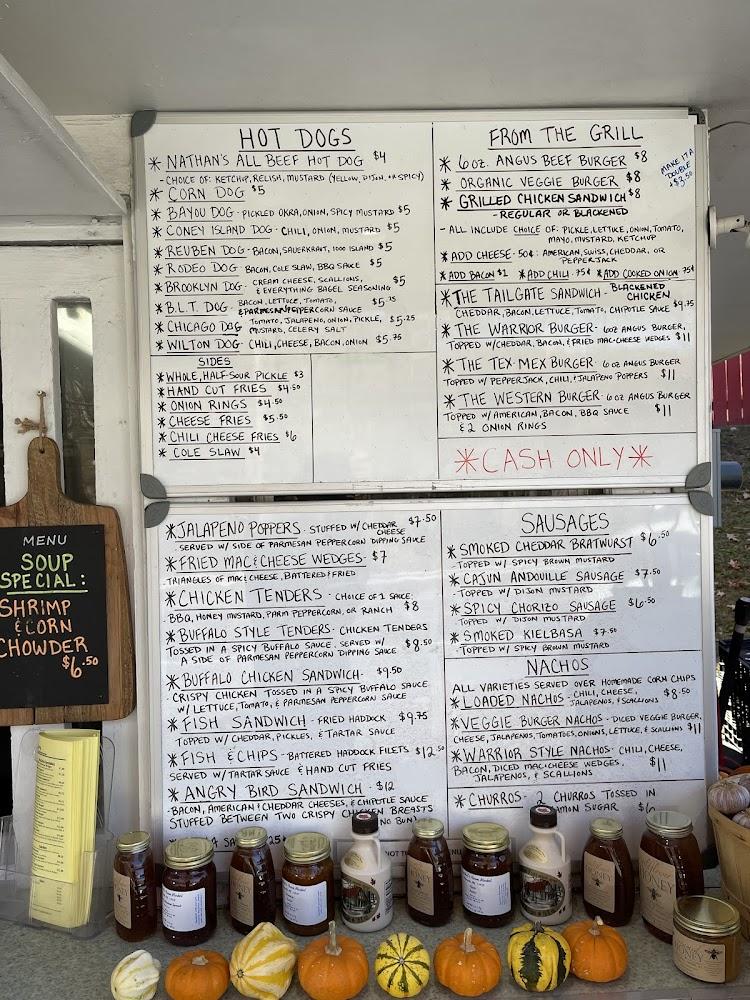 HOT DOGS
* NATHAN'S ALL BEEF HOT DOG $4
- CHOICE OF: KETCHUP, RELISH, MUSTARD (YELLOW, DIJON, OR SPICY)
* CORN DOG $5
* BAYOU DOG - PICKLED OKRA, ONION, SPICY MUSTARD $5
* CONEY ISLAND DOG - CHILI, ONION, MUSTARD $5
* REUBEN DOG - BACON, SAUERKRAUT, 1000 ISLAND $5
* RODEO DOG BACON, COLE SLAW, BBQ SAUCE $5
* BROOKLYN DOG - CREAM CHEESE, SCALLIONS,
& EVERYTHING BAGEL SEASONING $5
* B.L.T. DOG - BACON, LETTUCE, TOMATO,
& PARMESAN PEPPERCORN SAUCE $5.25
* CHICAGO DOG TOMATO, JALAPENO, ONION, PICKLE,
MUSTARD, CELERY SALT $5.25
* WILTON DOG - CHILI, CHEESE, BACON, ONION $5.75
SIDES
* WHOLE, HALF-SOUR PICKLE $3
* HAND CUT FRIES $4.50
* ONION RINGS $4.50
* CHEESE FRIES $5.50
* CHILI CHEESE FRIES $6
* COLE SLAW $4
FROM THE GRILL
* 6 OZ. ANGUS BEEF BURGER $8
* ORGANIC VEGGIE BURGER $8
* GRILLED CHICKEN SANDWICH $8
- REGULAR OR BLACKENED
MAKE IT A
DOUBLE
+$3.50
- ALL INCLUDE CHOICE OF: PICKLE, LETTUCE, ONION, TOMATO,
MAYO, MUSTARD, KETCHUP
* ADD CHEESE - 50¢: AMERICAN, SWISS, CHEDDAR, OR
PEPPERJACK
* ADD BACON $1 * ADD CHILI .75¢ * ADD COOKED ONION 75¢
* THE TAILGATE SANDWICH - BLACKENED
CHICKEN
CHEDDAR, BACON, LETTUCE, TOMATO, CHIPOTLE SAUCE $9.75
* THE WARRIOR BURGER - 6OZ ANGUS BURGER,
TOPPED W/CHEDDAR, BACON, & FRIED MAC-CHEESE WEDGES $11
* THE TEX-MEX BURGER - 6 OZ ANGUS BURGER
TOPPED W/ PEPPERJACK, CHILI, & JALAPENO POPPERS $11
* THE WESTERN BURGER - 6 OZ ANGUS BURGER
TOPPED W/ AMERICAN, BACON, BBQ SAUCE
& 2 ONION RINGS $11
*CASH ONLY*
* JALAPENO POPPERS - STUFFED W/ CHEDDAR
CHEESE $7.50
- SERVED W/ SIDE OF PARMESAN PEPPERCORN DIPPING SAUCE
* FRIED MAC & CHEESE WEDGES - $7
- TRIANGLES OF MAC & CHEESE, BATTERED & FRIED
* CHICKEN TENDERS - CHOICE OF 1 SAUCE:
- BBQ, HONEY MUSTARD, PARM PEPPERCORN, OR RANCH $8
* BUFFALO STYLE TENDERS - CHICKEN TENDERS
TOSSED IN A SPICY BUFFALO SAUCE. SERVED W/
A SIDE OF PARMESAN PEPPERCORN DIPPING SAUCE $8.50
* BUFFALO CHICKEN SANDWICH - $9.50
- CRISPY CHICKEN TOSSED IN A SPICY BUFFALO SAUCE
W/ LETTUCE, TOMATO, & PARMESAN PEPPERCORN SAUCE
* FISH SANDWICH - FRIED HADDOCK $9.75
TOPPED W/ CHEDDAR, PICKLES, & TARTAR SAUCE
* FISH & CHIPS - BATTERED HADDOCK FILETS $12.50
SERVED W/ TARTAR SAUCE & HAND CUT FRIES
* ANGRY BIRD SANDWICH - $12
- BACON, AMERICAN & CHEDDAR CHEESES, & CHIPOTLE SAUCE
STUFFED BETWEEN TWO CRISPY CHICKEN BREASTS
(NO BUN)
SAUSAGES
* SMOKED CHEDDAR BRATWURST $6.50
- TOPPED W/ SPICY BROWN MUSTARD
* CAJUN ANDOUILLE SAUSAGE $7.50
- TOPPED W/ DIJON MUSTARD
* SPICY CHORIZO SAUSAGE $6.50
- TOPPED W/ DIJON MUSTARD
* SMOKED KIELBASA $7.50
- TOPPED W/ SPICY BROWN MUSTARD
NACHOS
ALL VARIETIES SERVED OVER HOMEMADE CORN CHIPS
* LOADED NACHOS - CHILI, CHEESE,
JALAPENOS, & SCALLIONS $8.50
* VEGGIE BURGER NACHOS - DICED VEGGIE BURGER,
CHEESE, JALAPENOS, TOMATOES, ONIONS, LETTUCE, & SCALLIONS $11
* WARRIOR STYLE NACHOS - CHILI, CHEESE,
BACON, DICED MAC & CHEESE WEDGES,
JALAPENOS, & SCALLIONS $11
* CHURROS - 2 CHURROS TOSSED IN
SUGAR $6
MENU
SOUP
SPECIAL:
SHRIMP
& CORN
CHOWDER
$6.50
HONEY
HONEY
HONEY
HONEY
HONEY
HONEY